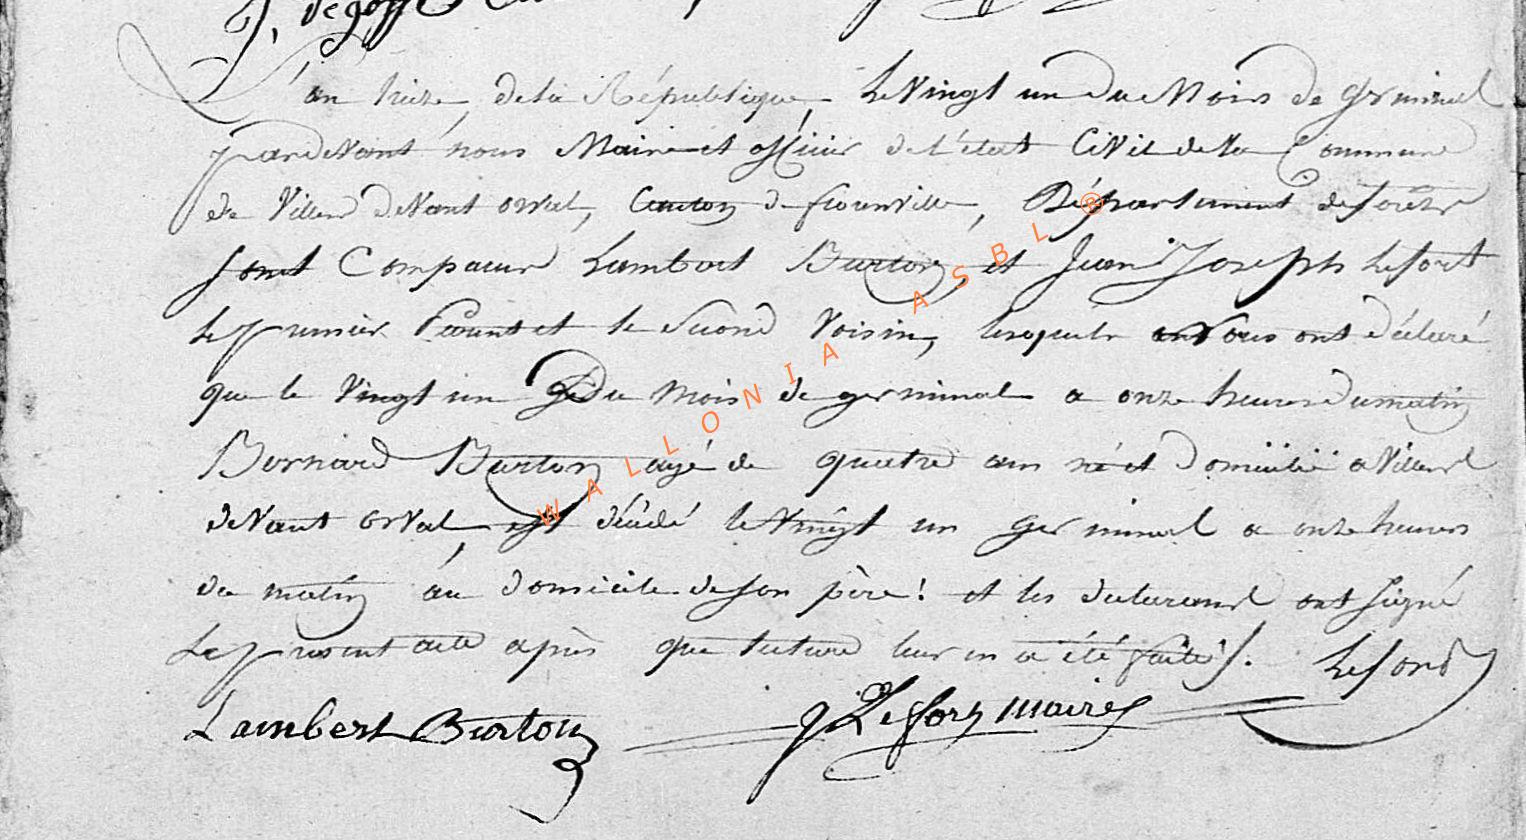 J. degoff
L'an treize de la République, le vingt un du Mois de Germinal
pardevant nous Maire et officier de l'état Civil de la Commune
de Villers devant orval, Canton de florenville, Département de forêts
sont Comparus Lambert Burton, et Jean Joseph Lefort
le premier Parent et le second Voisin, lesquels nous ont déclaré
que le Vingt un du mois de germinal a onze heures du matin
Bernard Burton agé de quatre ans né et domicilié a Villers
devant orval, est décédé le Vingt un germinal a onze heures
du matin au domicile de son père! et les declarans ont signé
Le present acte après que lecture leur en a été faite. Lefort
Lambert Burton Lefort maire
WALLONIA ASBL ®